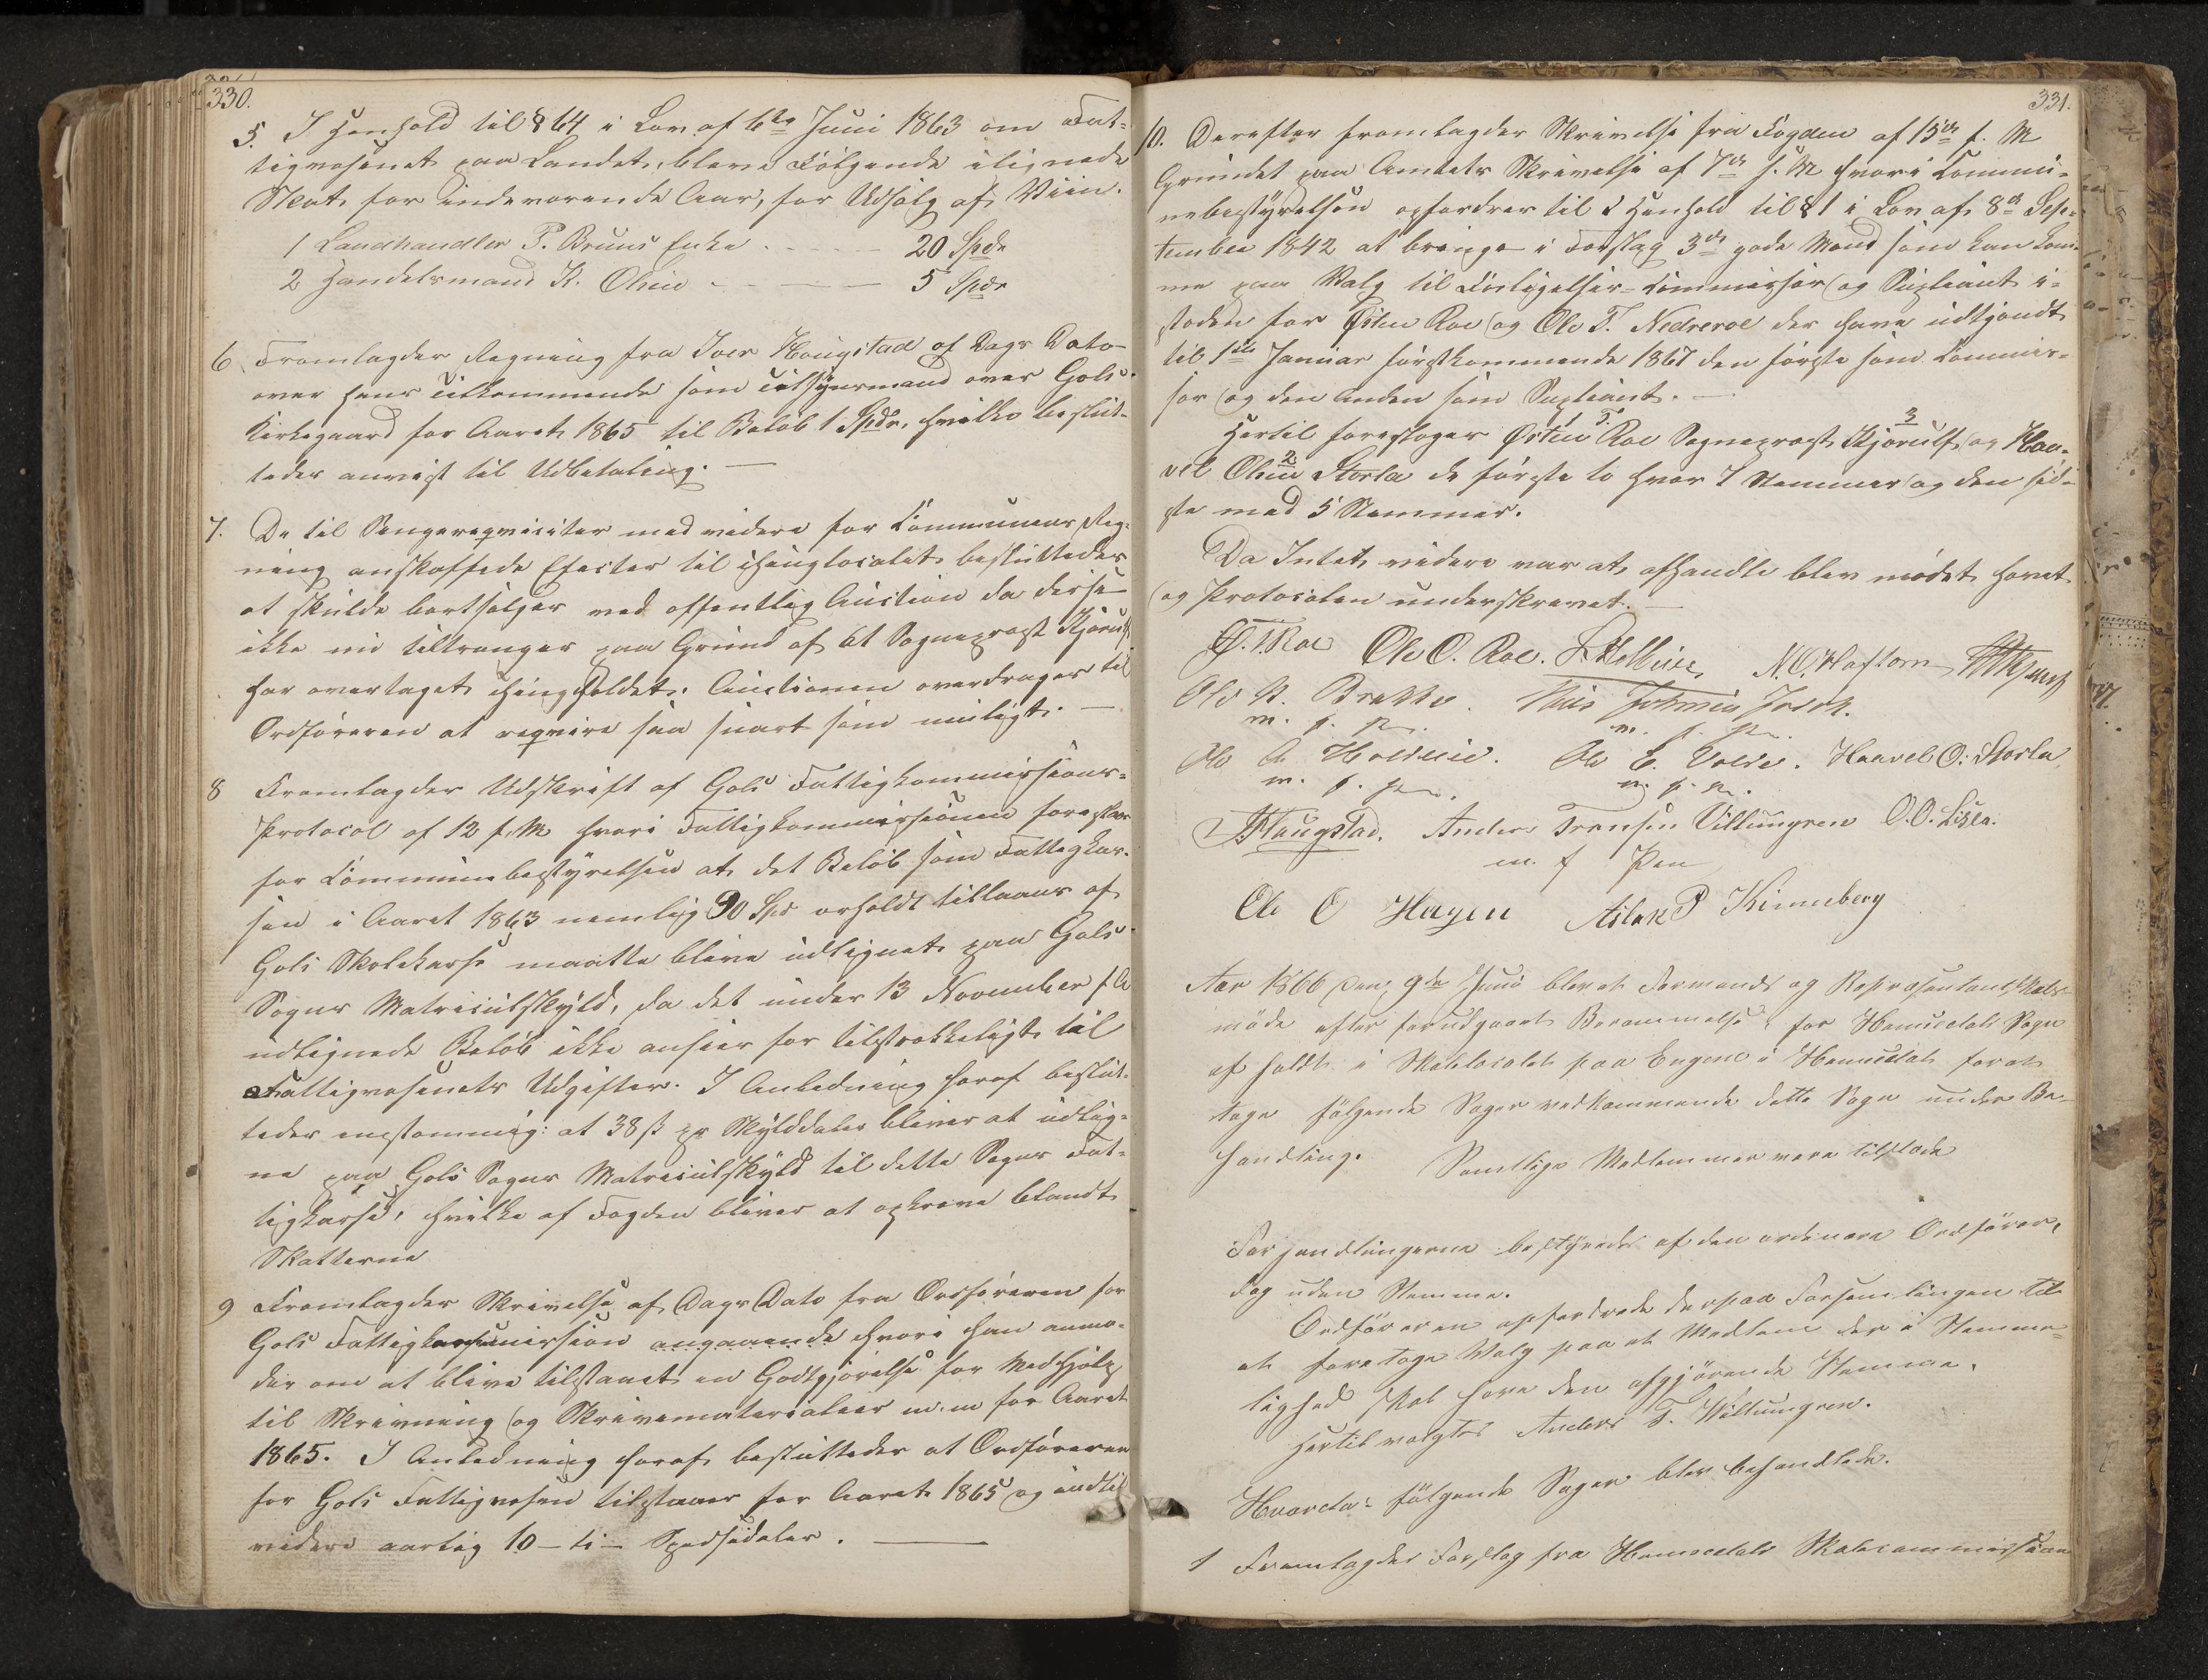 330.
5. I Henhold til § 64 i Lov af 6te Juni 1863 om Fat-
tigvæsenet paa Landet, bleve Følgende ilignede
Skat for indeværende Aar, for Udsalg af Viin.
1 Landhandler P. Bruns Enke . - - - - 20 Spdr
2 Handelsmand K. Olsen - - - - - 5 Spdr
6 Fremlagdes Regning fra Iver Haugstad af Dags Dato
over hans Tilkommende som Tilsynsmand over Gols
Kirkegaard for Aaret 1865 til Beløb 1 Spdr, hvilke beslut-
tedes anvist til Udbetaling. —
7. De til Sengereqvisiter med videre for Communens Reg-
ning anskaffede Efecter til Thinglocalet besluttedes
at skulde bortsælges ved offentlig Auction da disse
ikke nu tiltrænges paa Grund af at Sognepræst Kjerulf
har overtaget Thingholdet. Auctionen overdrages til
Ordføreren at reqvirere saa snart som muligt. —
8 Fremlagdes Udskrift af Gols Fattigkommissions-
Protocol af 12 f. M hvori Fattigkommissionen foreslaar
for Communebestyrelsen at det Beløb som Fattigkas-
sen i Aaret 1863 nemlig 90 Spd erholdt tillaans af
Gols Skolekasse maatte blive udlignet paa Gols
Sogns Matriculskyld, da det under 13 November f A
udlignede Beløb ikke ansees for tilstrækkeligt til
Fattigvæsenets Udgifter. I Anledning heraf beslut-
tedes enstemmig: at 38 ß pr Skylddaler bliver at udlig-
ne paa Gols Sogns Matriculskyld til dette Sogns Fat-
tigkasse, hvilke af Fogden bliver at opkræve blandt
Skatterne
9 Fremlagdes Skrivelse af Dags Dato fra Ordføreren for
Gols Fattigkommission angaaende hvori han anmo-
der om at blive tilstaaet en Godtgjørelse for Medhjelp
til Skrivning og Skrivematerialier m. m for Aaret
1865. I Anledning heraf besluttedes at Ordføreren
for Gols Fattigvæsen tilstaaes for Aaret 1865 og indtil
videre aarlig 10 - ti - Speciedaler. —
331.
10. Derefter fremlagdes Skrivelse fra Fogden af 15de f. M
Grundet paa Amtets Skrivelse af 7de s. M hvori Commu-
nebestyrelsen opfordres til I Henhold til § 1 i Lov af 8de Sep-
tember 1842 at bringe i Forslag 3de gode Mænd som kan kom-
me paa Valg til Forligelses-Commissær og Supleant i-
steden for Østen Roe og Ole T. Nedreroe der have udtjendt
til 1ste Januar førstkommende 1867 den første som Commis-
sær og den Anden som Supleant. —
Hertil foreslaaes Østen T. 1 Roe Sognepræst Kjerulf 3 og Haa-
vel Olsen 2 Storla de første to hver 7 Stemmer og den sid-
ste med 5 Stemmer.
Da Intet videre var at afhandle blev mødet hævet
og Protocolen underskrevet. —
Ø. T. Roe Ole O. Roe. N. O. Kjerulf
Ole N. Brække. Nils
m. f. P. m. f. P.
Ole A. Ole E. Haavel O: Storla
m. f. P. m. f. P.
I Haugstad. Anders Torensen Villumgren O. O. Lisla.
m. f Pen
Ole O Hagen Aslak P Kinneberg
Aar 1866 Den 9de Juni blev et Formands og Repræsentantskabs-
møde efter forudgaaet Berammelse for Hemsedals Sogn
afholdt i Skolelocalet paa Engene i Hemsedal for at
tage følgende Sager vedkommende dette Sogn under Be-
handling. Samtlige Medlemmer vare tilstede
Forhandlingerne bestyredes af den ordinære Ordfører,
dog uden Stemme.
Ordføreren opfordrede derpaa Forsamlingen til
at foretage Valg paa et Medlem der i Stemme-
lighed skal have den afgjørende Stemme.
Hertil valgtes Anders T. Villumgren.
Hvorefter følgende Sager blev behandlede.
1 Fremlagdes Forslag fra Hemsedals Skolecommission